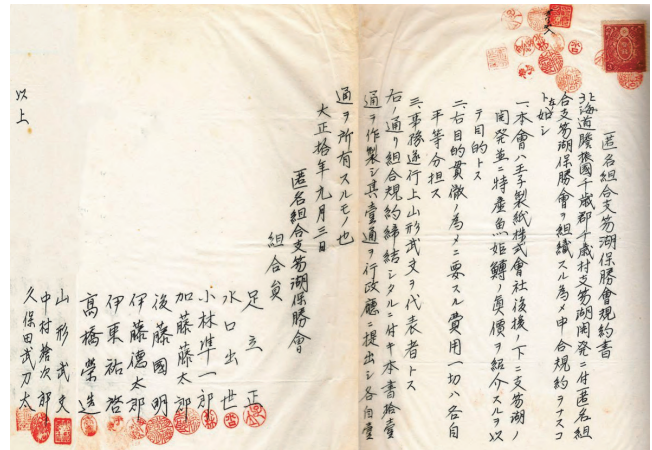 匿名組合支笏湖保勝會規約書
北海道膽振國千歳郡千歳村支笏湖開発ニ付匿名組
合支笏湖保勝會ヲ組織スル為メ申合規約ヲナスコ
ト如シ
一、本會ハ王子製紙株式會社後援ノ下ニ支笏湖ノ
開発並ニ特産魚姫鱒ノ真價ヲ紹介スルヲ以
テ目的トス
二、右目的貫徹ノ為メニ要スル費用一切ハ各自
平等分担ス
三、事務遂行上山形武夫ヲ代表者トス
右ノ通リ組合規約締結シタルニ付キ本書拾壹
通ヲ作製シ其壹通ヲ行政廳ニ提出シ各自壹
通ヲ所有スルモノ也
大正拾年九月三日
匿名組合支笏湖保勝會
組合員
足立正
水口出世
小林準一郎
加藤藤太郎
後藤國明
伊藤德太郎
伊東祐啓
高橋榮造
山形武夫
中村捨次郎
久保田武刀太
以上